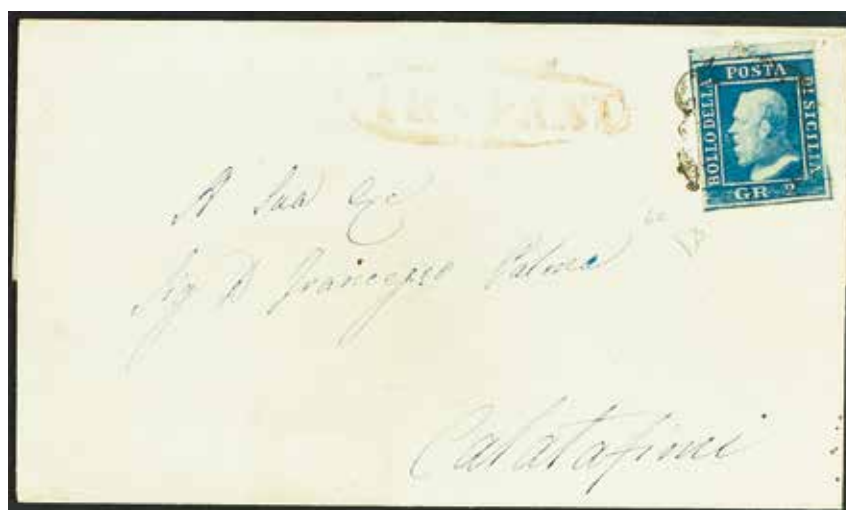 POSTA
BOLLO DELLA
DI SICILIA
GR 2
A Sua Ecc
Sig D Francesco Palma
Calatafimi